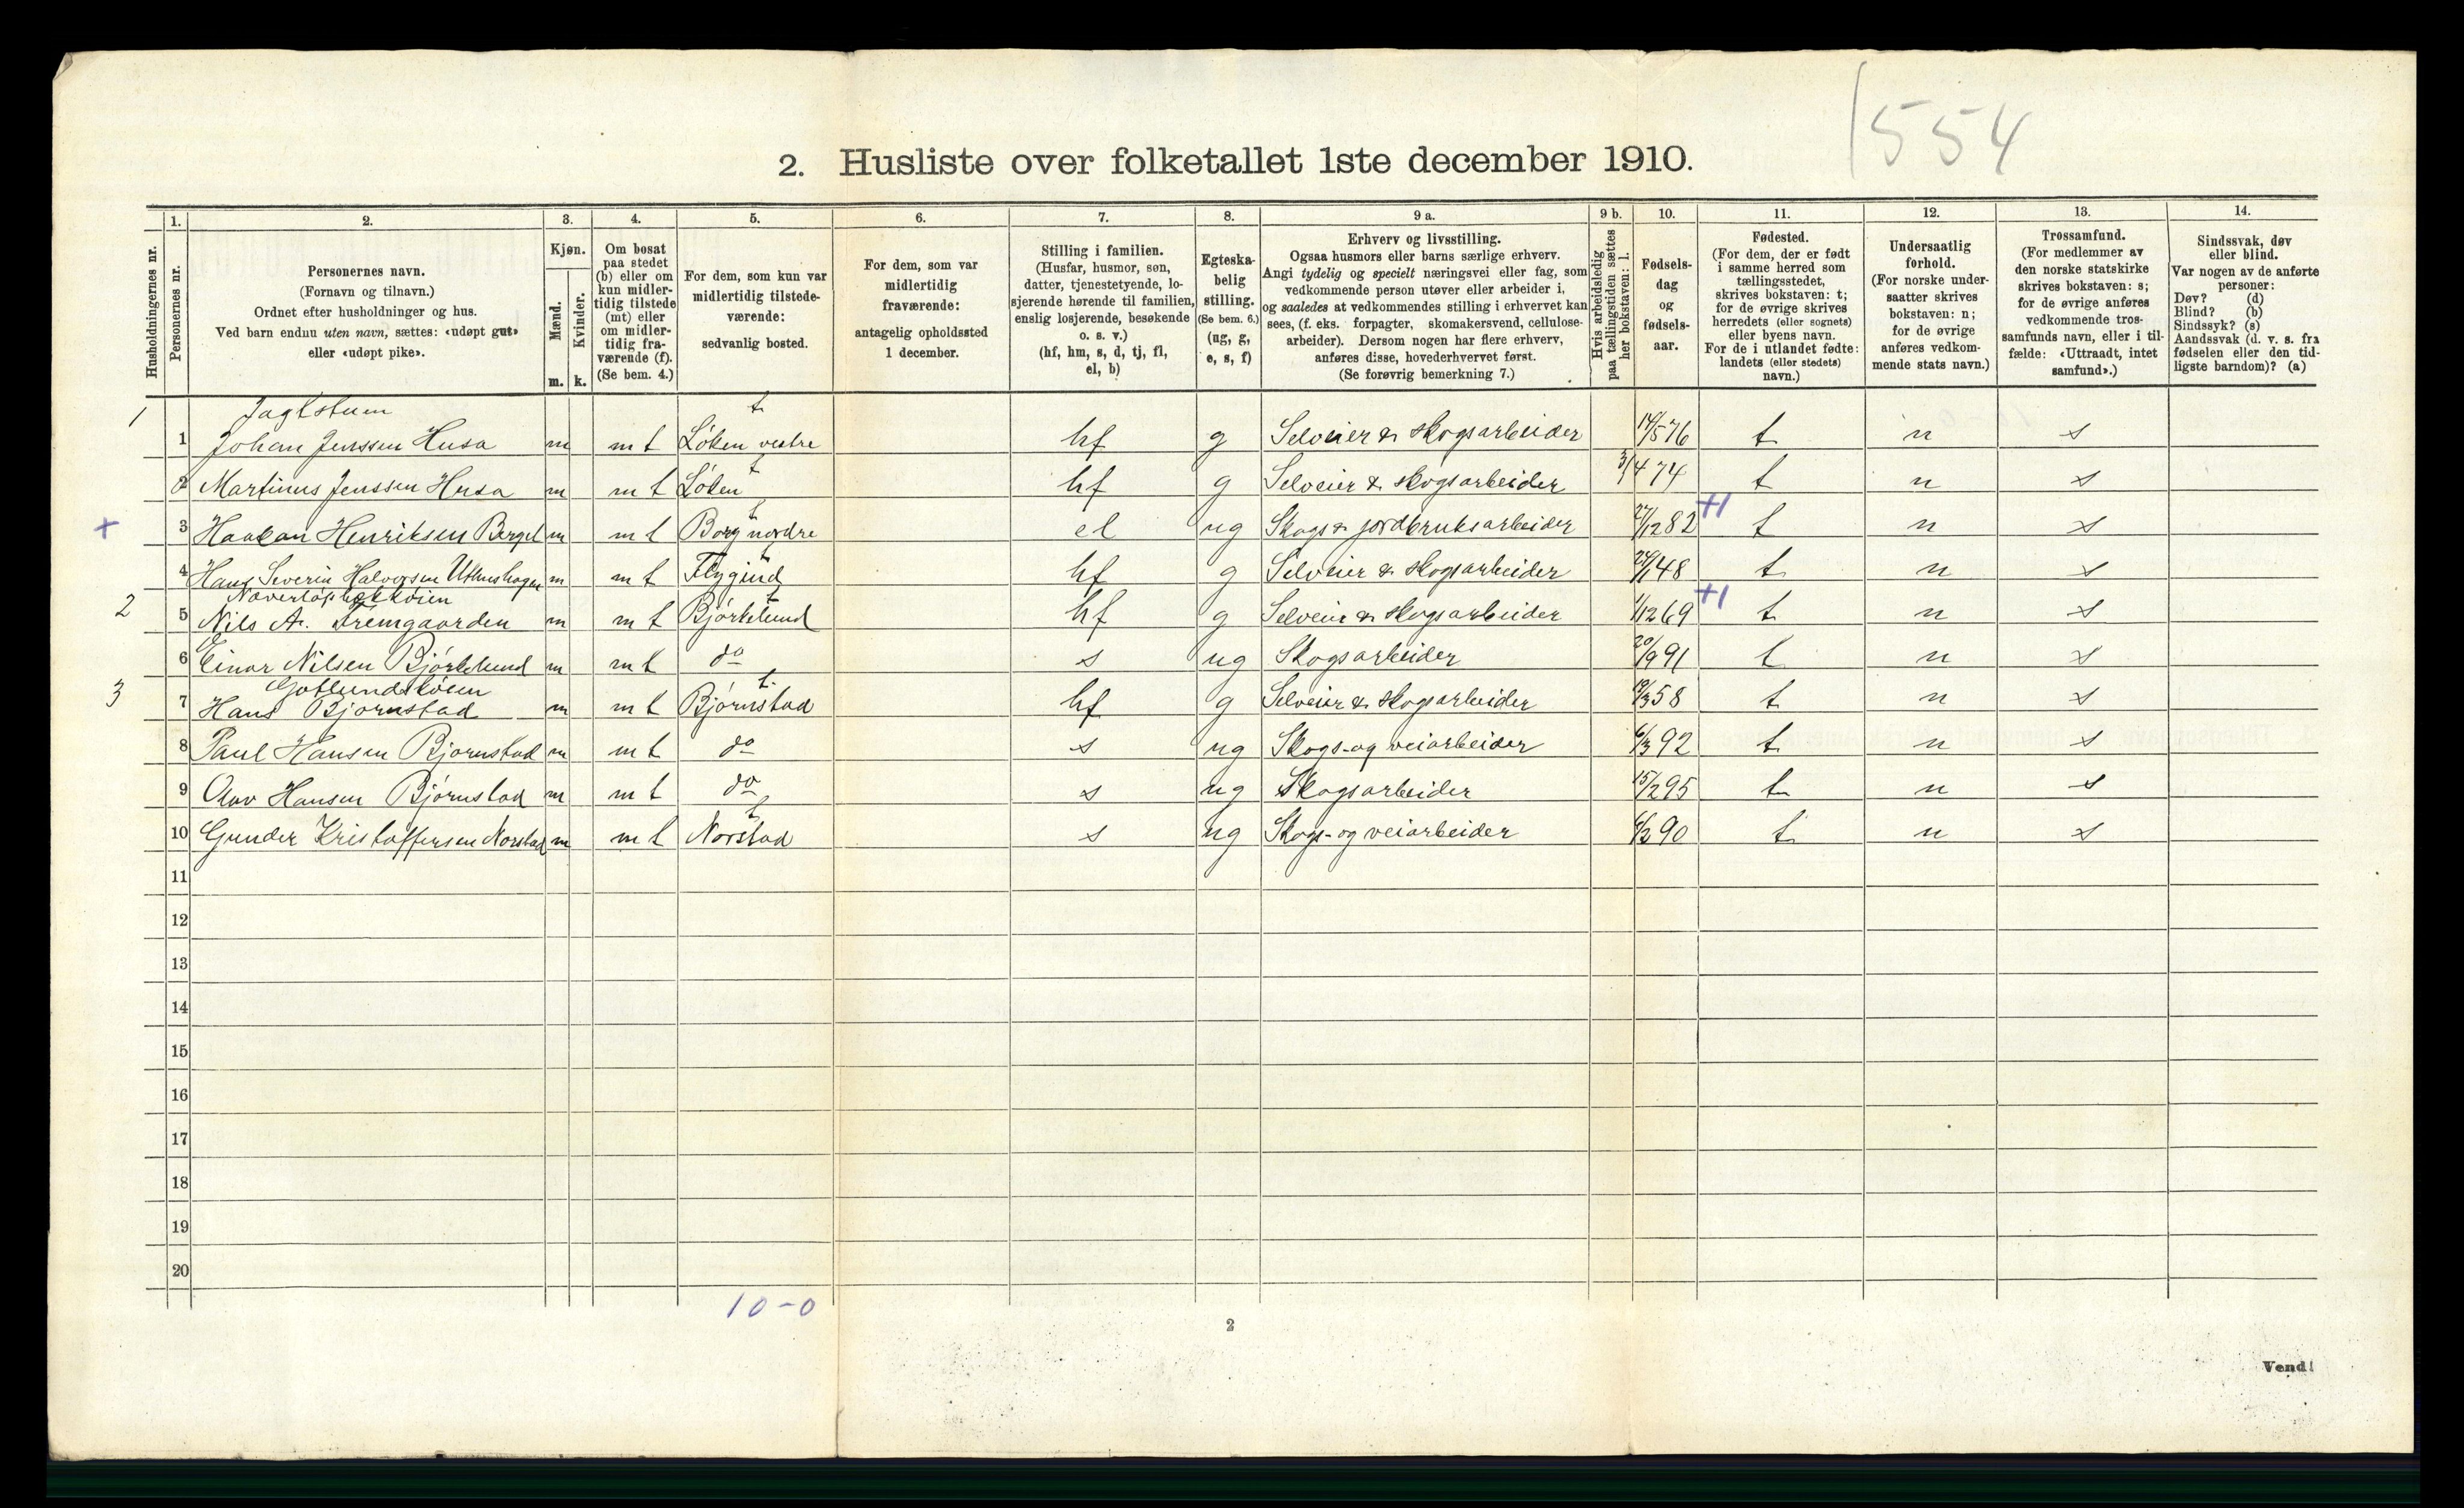 1554
2. Husliste over folketallet 1ste december 1910.
Husholdningernes nr.
1. Personernes nr.
2. Personernes navn.
(Fornavn og tilnavn.)
Ordnet efter husholdninger og hus.
Ved barn endnu uten navn, sættes: «udøpt gut»
eller «udøpt pike».
3. Kjøn.
Mænd. m.
Kvinder. k.
4. Om bosat
paa stedet
(b) eller om
kun midler-
tidig tilstede
(mt) eller
om midler-
tidig fra-
værende (f).
(Se bem. 4.)
5. For dem, som kun var
midlertidig tilstede-
værende:
sedvanlig bosted.
6. For dem, som var
midlertidig
fraværende:
antagelig opholdssted
1 december.
7. Stilling i familien.
(Husfar, husmor, søn,
datter, tjenestetyende, lo-
sjerende hørende til familien,
enslig losjerende, besøkende
o. s. v.)
(hf, hm, s, d, tj, fl,
el, b)
8. Egteska-
belig
stilling.
(Se bem. 6.)
(ug, g,
e, s, f)
9 a. Erhverv og livsstilling.
Ogsaa husmors eller barns særlige erhverv.
Angi tydelig og specielt næringsvei eller fag, som
vedkommende person utøver eller arbeider i,
og saaledes at vedkommendes stilling i erhvervet kan
sees, (f. eks. forpagter, skomakersvend, cellulose-
arbeider). Dersom nogen har flere erhverv,
anføres disse, hovederhvervet først.
(Se forøvrig bemerkning 7.)
9 b. Hvis arbeidsledig
paa tællingstiden sættes
her bokstaven: l.
10. Fødsels-
dag
og
fødsels-
aar.
11. Fødested.
(For dem, der er født
i samme herred som
tællingsstedet,
skrives bokstaven: t;
for de øvrige skrives
herredets (eller sognets)
eller byens navn.
For de i utlandet fødte:
landets (eller stedets)
navn.)
12. Undersaatlig
forhold.
(For norske under-
saatter skrives
bokstaven: n;
for de øvrige
anføres vedkom-
mende stats navn.)
13. Trossamfund.
(For medlemmer av
den norske statskirke
skrives bokstaven: s;
for de øvrige anføres
vedkommende tros-
samfunds navn, eller i til-
fælde: «Uttraadt, intet
samfund».)
14. Sindssvak, døv
eller blind.
Var nogen av de anførte
personer:
Døv? (d)
Blind? (b)
Sindssyk? (s)
Aandssvak (d. v. s. fra
fødselen eller den tid-
ligste barndom)? (a)
1 Jagtstuen t
1 Johan Jenssen Husa m mt Löken vestre hf g Selveier & skogsarbeider 14/5 76 t n s
t
2 Martinus Jenssen Husa m mt Löken hf g Selveier & skogsarbeider 3/4 74 t n s
t +1
+ 3 Haakan Henriksen Berget m mt Borg nordre el ug Skogs & jordbruksarbeider 27/12 82 t n s
t
4 Hans Severin Halvorsen m mt Flygind hf g Selveier & skogsarbeider 24/1 48 t n s
t +1
2 5 Nils A. Fremgaarden m mt Björkelund hf g Selveier & skogsarbeider 1/12 69 t n s
6 Einar Nilsen Björkelund m mt do s ug Skogsarbeider 20/9 91 t n s
3 Gotlundskoien t
7 Hans Bjornstad m mt Björnstad hf g Selveier & skogsarbeider 19/3 58 t n s
8 Paul Hansen Bjornstad m mt do s ug Skogs- og veiarbeider 6/3 92 t n s
9 Olav Hansen Björnstad m mt do s ug Skogsarbeider 15/2 95 t n s
t
10 Gunder Kristoffersen Norstad m mt Norstad s ug Skogs- og veiarbeider 6/2 90 t n s
11
12
13
14
15
16
17
18
19
20
10-0
2
Vend!